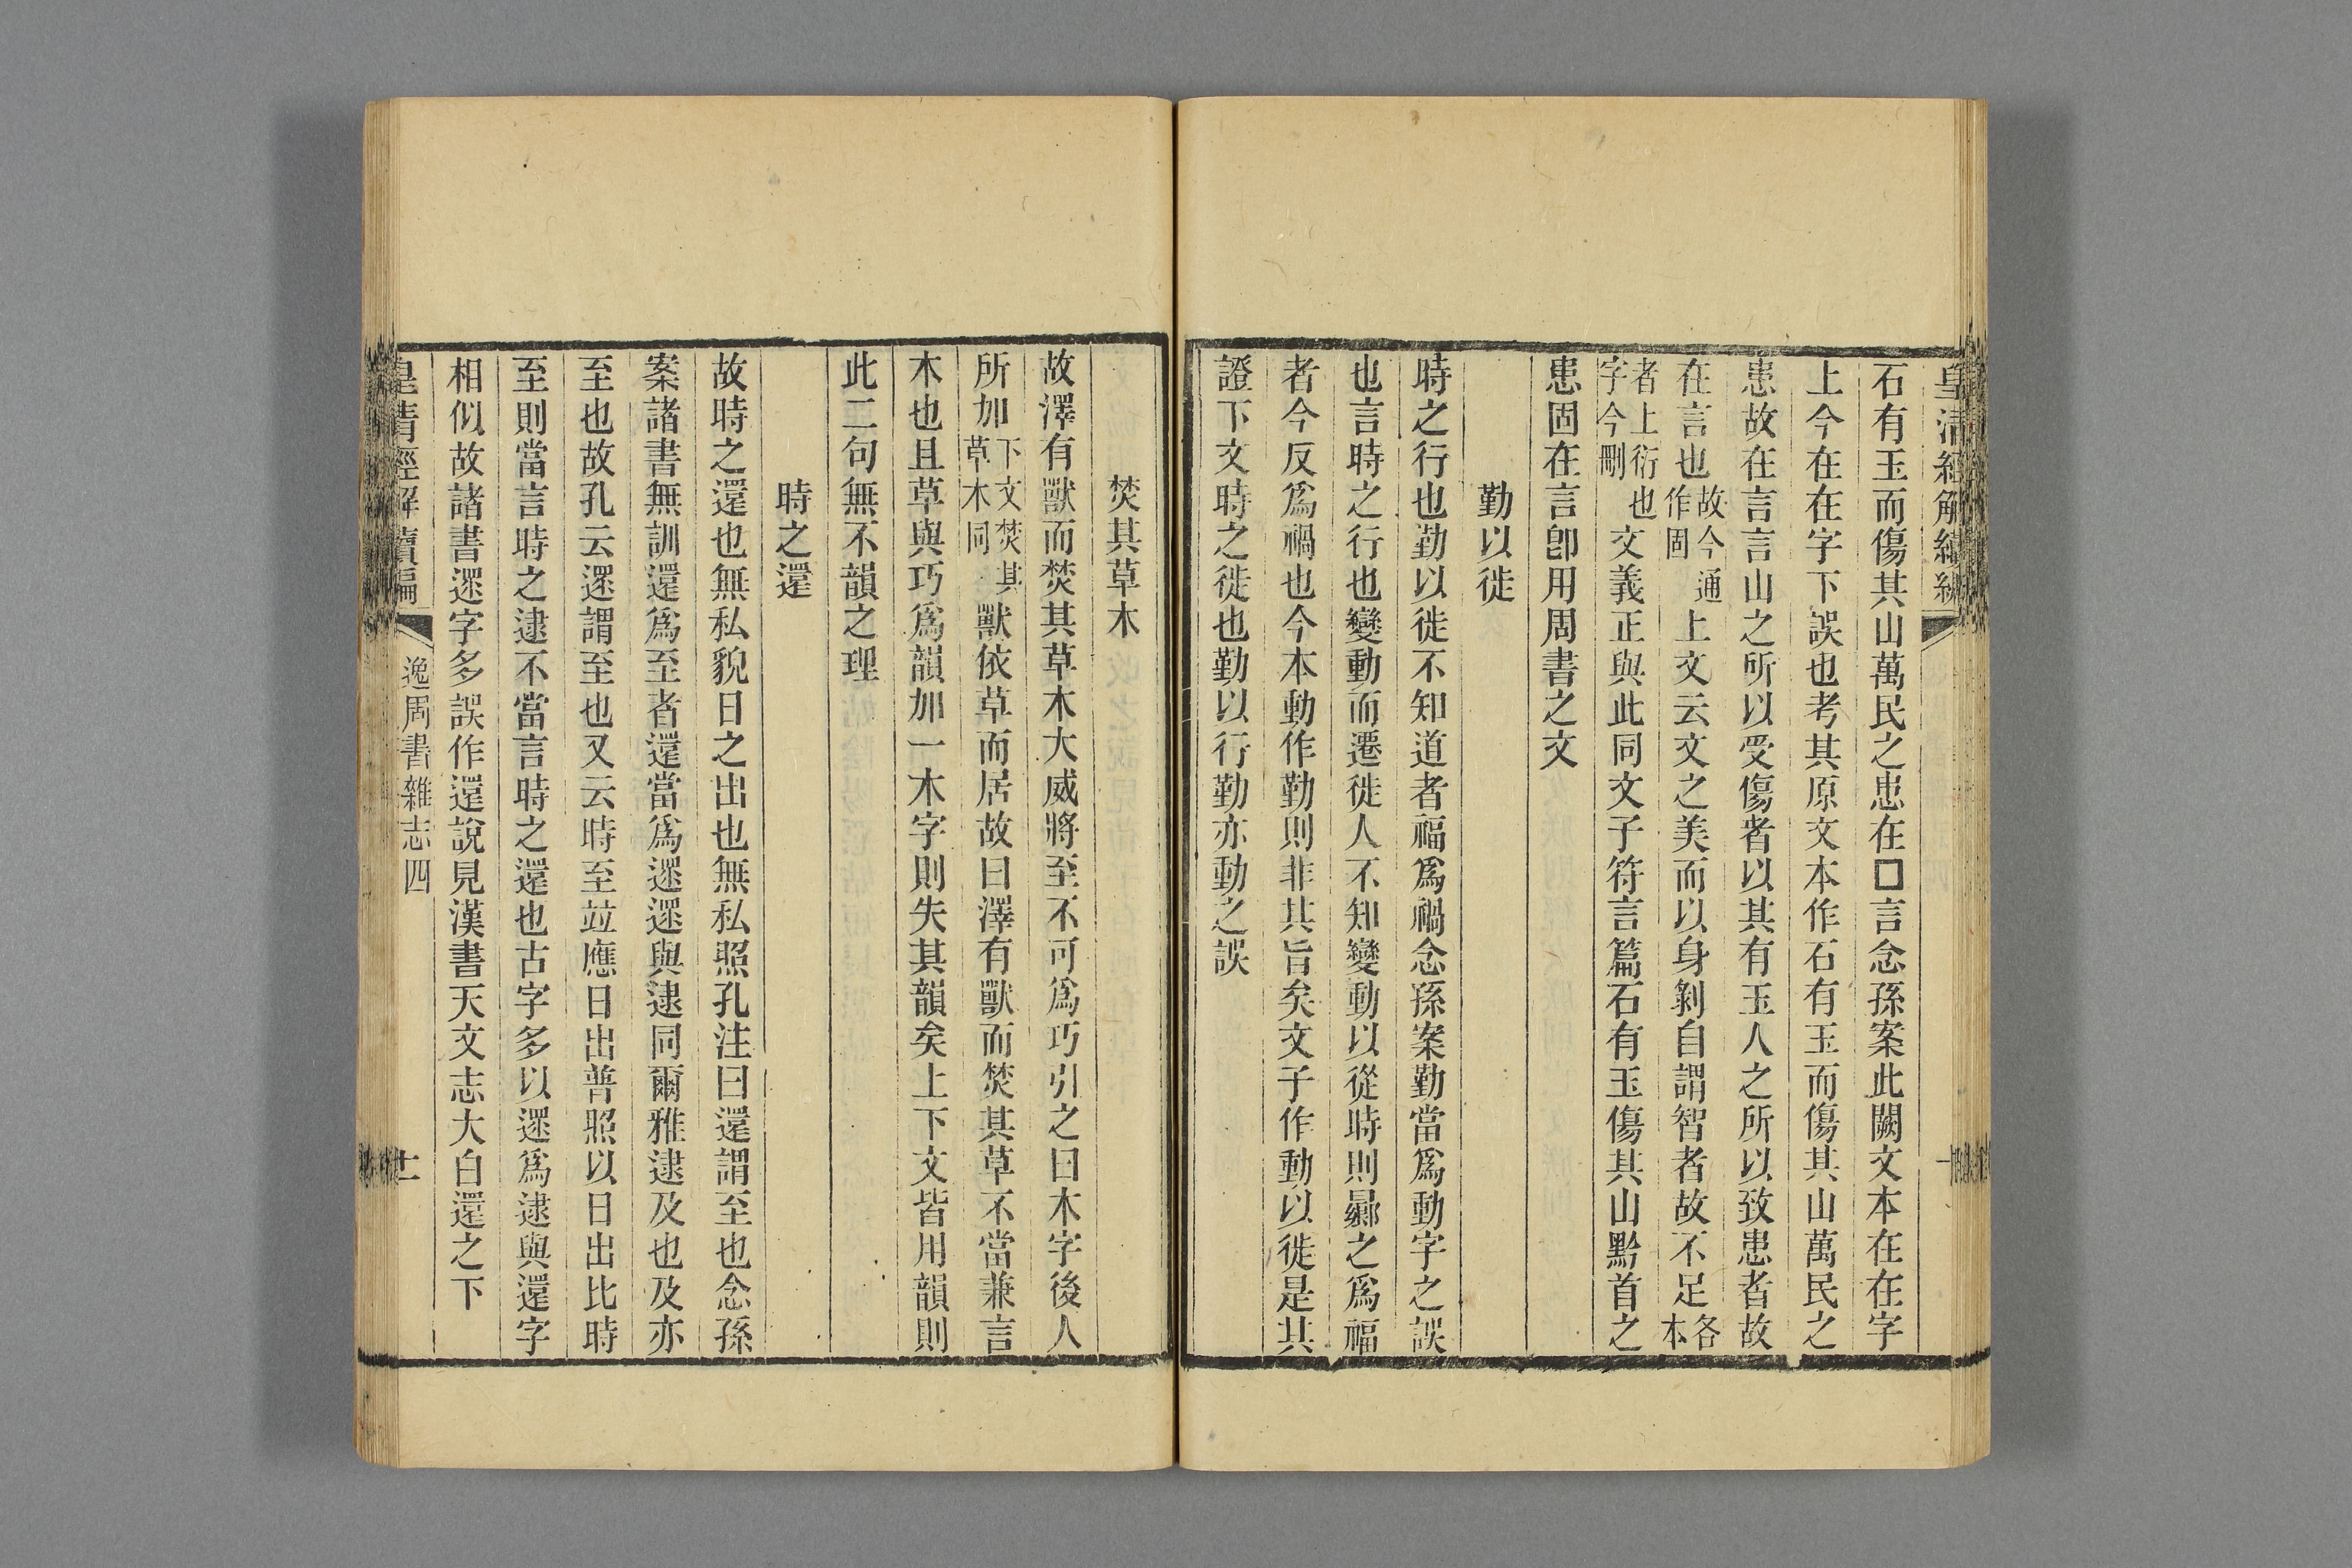 皇清經解續編
石有玉而傷其山萬民之患在□言念孫案此闕文本在在字
上今在在字下誤也考其原文本作石有玉而傷其山萬民之
患故在言言山之所以受傷者以其有玉人之所以致患者故
在言也故今通作固上文云文之美而以身剝自謂智者故不足各本
者上衍也字今刪文義正與此同文子符言篇石有玉傷其山黔首之
患固在言卽用周書之文
勤以徙
時之行也勤以徙不知道者福爲禍念孫案勤當爲動字之誤
也言時之行也變動而遷徙人不知變動以從時則曏之爲福
者今反爲禍也今本動作勤則非其旨矣文子作動以徙是其
證下文時之徙也勤以行勤亦動之誤
焚其草木
故澤有獸而焚其草木大威將至不可爲巧引之曰木字後人
所加下文焚其草木同獸依草而居故曰澤有獸而焚其草不當兼言
木也且草與巧爲韻加一木字則失其韻矣上下文皆用韻則
此二句無不韻之理
時之還
故時之還也無私貌日之出也無私照孔注曰還謂至也念孫
案諸書無訓還爲至者還當爲遝遝與逮同爾雅逮及也及亦
至也故孔云遝謂至也又云時至竝應日出普照以日出比時
至則當言時之逮不當言時之還也古字多以遝爲逮與還字
相似故諸書遝字多誤作還說見漢書天文志大白還之下
皇清經解續編
逸周書雜志四
十一